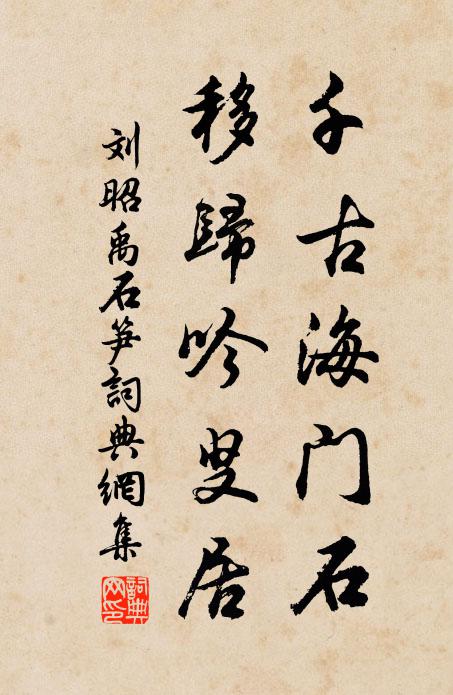 千古海门石
移歸吟叟居
刘昭禹石笋詞典網集
詞典网印